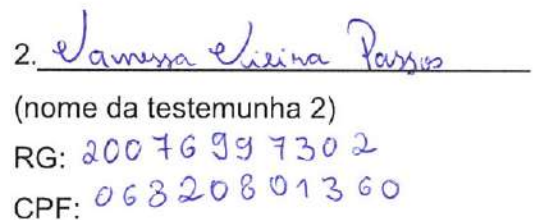 2. Vanessa Vieira Passos
(nome da testemunha 2)
RG: 20076997302
CPF: 06320801360